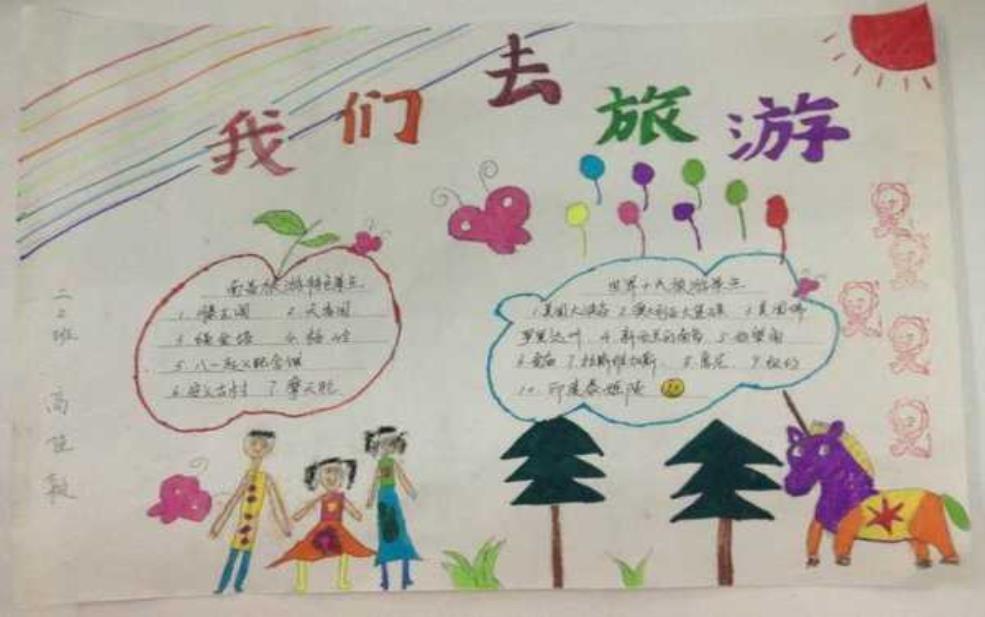 我们去旅游
南昌旅游特色景点
1. 滕王阁 2. 天香园
3. 绳金塔 4. 梅岭
5. 八一起义纪念馆
6. 安义古村 7. 摩天轮
世界十大旅游景点
1. 美国大峡谷 2. 澳大利亚大堡礁 3. 美国佛
罗里达州 4. 新西兰的南岛 5. 好望角
6. 金庙 7. 拉斯维加斯 8. 悉尼 9. 纽约
10. 印度泰姬陵
二2班
高